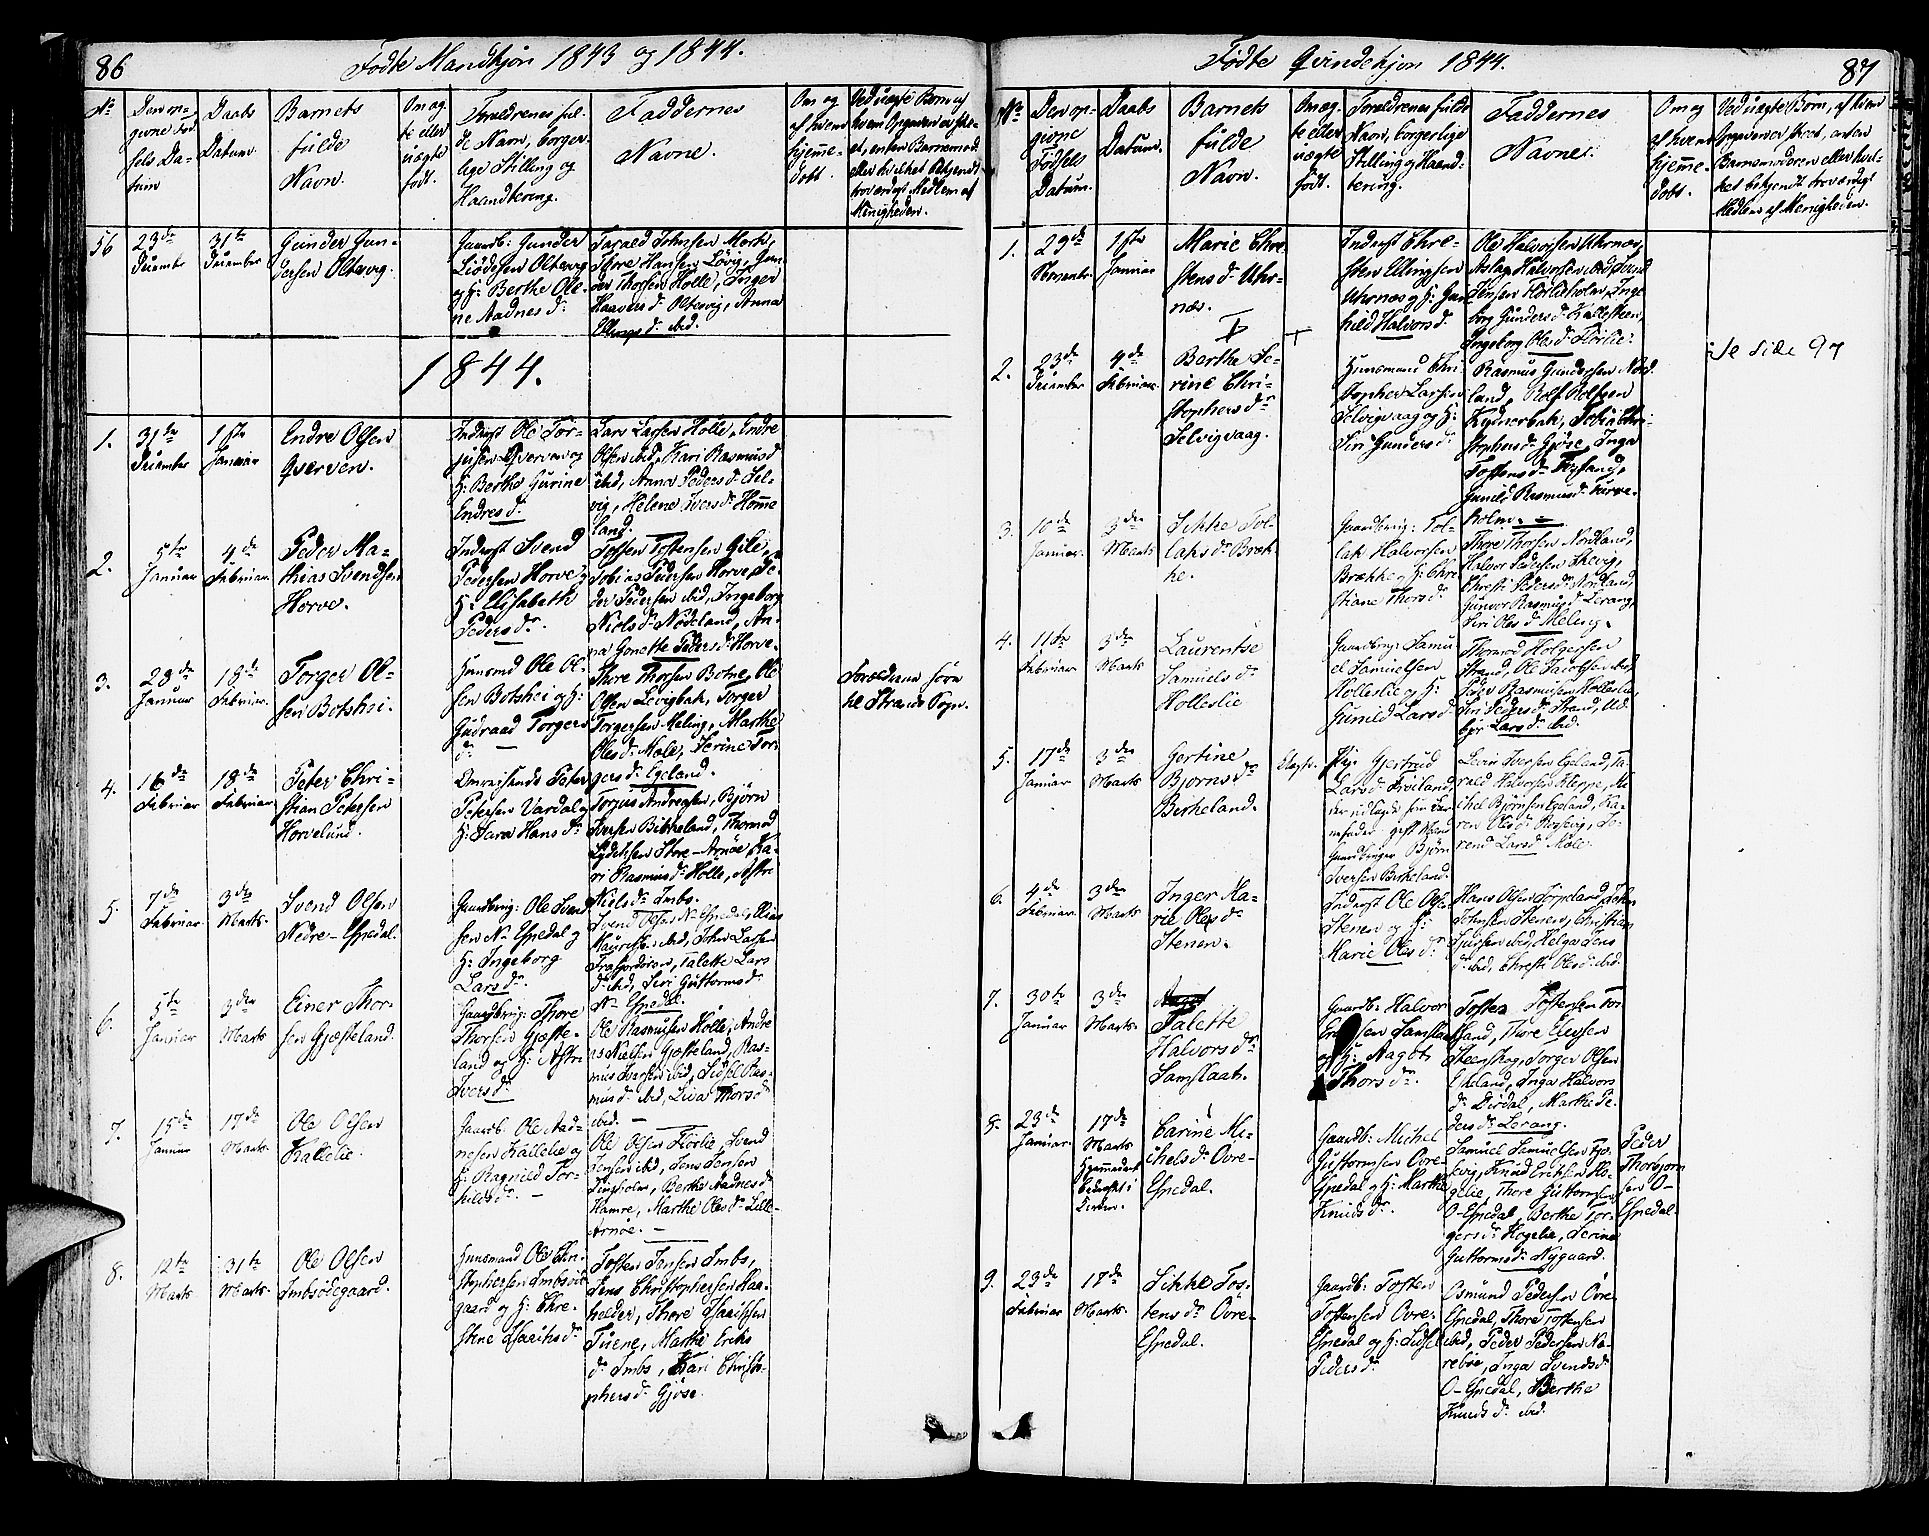 86
Fødte Mandkjøn 1843 og 1844.
No
Den op-
givne fød-
sels Da-
tum
Daabs
Datum.
Barnets
fulde
Navn.
Om æg-
te eller
uægte
født.
Forældrenes ful-
de Navn, borger-
lige Stilling og
Haandtering.
Faddernes
Navne.
Om og
af hvem
hjemme-
døbt.
56
23de
December
31te
December
Gunder Gun-
dersen Oltesvig.
Gaardb: Gunder
Oltesvig
og H: Berthe Ole-
ne Aadnesdr.
Tarald Johnsen Mork,
Thore Hansen Løvig, Gun-
der Thorsen Holle, Inger
Haaversdr. Oltesvig, Anna
ibid.
1844.
1.
31te
December
1ste
Januar
Endre Olsen
Qverven.
Inderst Ole Tor-
jusen Qverven og
H: Berthe Gurine
Endresdr.
Lars Larsen Holle, Endre
Olsen ibid, Kari Rasmusdr
ibid, Anna Pedersdr. Sel-
vig, Helene Iversdr. Homme-
land.
2.
5te
Januar
4de
Februar
Peder Ma-
thias Svendsen
Horve.
Inderst Svend
Pedersen Horve og
H: Elisabeth
Pedersdr.
Tosten Tostensen Gilje,
Tobias Pedersen Horve, Pe-
der Pedersen ibid, Ingeborg
Nielsdr. Nødeland, An-
na Gonette Pedersdr. Horve.
3.
28de
Januar
18de
Februar.
Torger Ol-
sen Botshei.
Huusmd Ole Ol-
sen Botshei og H:
Gudraad Torgers-
dr.
Thore Thorsen Botne, Ole
Olsen Levigbak, Torger
Torgersen Meling, Marthe
Olesdr. Mæle, Serine Tor-
gersdr. Egeland.
Forældrene søge
til Strands Sogn.
4.
16de
Februar
18de
Februar
Peter Chri-
stian Petersen
Horvelund.
Omreisende Peter
Petersen Vardal og
H: Sara Hansdr.
Torjus Andreasen, Bjørn
Iversen Birkeland, Thormod
Lydehsen Store-Arnøe, Ka-
ri Rasmusdr. Holle, Astri
Nielsdr. Imbs.
5.
7de
Februar
3die
Marts.
Svend Olsen
Nedre-Espedal.
Gaardbrug: Ole Svend-
sen N. Espedal og
H: Ingeborg
Larsdr.
Svend Olsen N. Espedal, Elias
ibid, John Larsen
Frafjordøren, Talette Lars-
dr. ibid, Siri Guttormsdr
N. Espedal.
6.
5te
Januar
3die
Marts
Einer Thor-
sen Gjesteland.
Gaardbrug: Thore
Thorsen Gjeste-
land og H: Astri
Iversdr.
Ole Rasmussen Holle, Andre-
as Nielsen Gjesteland, Ras-
mus Iversen ibid, Sidsel Ras-
musdr. ibid, Thorsdr
ibid.
7.
15de
Januar
17de
Marts.
Ole Olsen
Kallelie.
Gaardb: Ole Aad-
nesen Kallelie og
H: Ragnild Tor-
kildsdr.
Ole Olsen Florlie, Svend
Jensen ibid, Jens Jensen
Berthe Aadnesdr
Hamre, Marthe Olesdr. Lille-
Arnøe.
8.
12te
Marts.
31te
Marts.
Ole Olsen
Imbsødegaard.
Huusmand Ole Chri-
stophersen Imbsøde-
gaard og H: Chri-
stine Isaaksdr.
Tosten Jansen Imbs,
Jens Christophersen Kaa-
helder, Thore Isaaksen
Tuene, Marthe Eriks-
dr. Imbs, Kari Christo-
phersdr. Gjøse.
Fødte Qvindekjøn 1844.
87
No
Den op-
givne
Fødsels
Datum.
Daabs
Datum.
Barnets
fulde
Navn.
Om æg-
te eller
uægte
født.
Forældrenes fulde
Navn, borgerlige
Stilling og Haand-
tering.
Faddernes
Navne.
Om og
af hvem
hjemme-
døbt.
Ved uægte Børn, af hvem
Opgaven er skeet, enten
Barnemoderen eller hvil-
ket bekjendt troværdigt
Medlem af Menigheden.
1.
29de
1ste
Januar
Marie Chri-
stensdr. Uhr-
næs.
Inderst Chri-
sten Ellingsen
Uhrnæs og H: Gun-
hild Halvorsdr.
Ole Halvorsen Uhrnæs,
Aslag Halvorsen ibid, Svend
Jensen Inge-
borg Gundersdr. Kallesteen,
Ingeborg Olesdr. Florlie.
2.
23de
December
4de
Februar.
Berthe Se-
rine Chri-
stophersdr
Selvigvaag.
Huusmand Chri-
stopher Larsen
Selvigvaag og H:
Siri Gundersdr.
Rasmus Gundersen Nord-
land, Rolf Rolfsen
Chri-
stophersdr. Gjøse, Inga
Tostensdr.
Gunild Rasmusdr.
holm.
se side 97
3.
10de
Januar.
3die
Marts
Sikke Tol-
laksdr. Bræk-
ke.
Gaardbrug: Tol-
lak Halvorsen
Brække og H: Chri-
stiane Thorsdr.
Thore Thorsen Nordland,
Halvor Pedersen
Christi Pedersdr. Nordland,
Gunvor Rasmusdr. Lerang,
Siri Olesdr. Meling.
4.
11te
Februar
3die
Marts
Laurentse
Samuelsdr.
Holleslie
Gaardbrug: Samu-
el Samuelsen
Holleslie og H:
Gunild Larsdr.
Thormod Holgersen
Strand, Ole Jacobsen ibid,
Peder Rasmusen Holleslie,
Siri Pedersdr. Strand,
Larsdr. ibid.
5.
17de
Januar
3die
Marts
Gertine
Bjørnsdr.
Berkeland.
Uægte.
Pige Gjertrud
Larsdr.
der udlagde som Bar-
nefader gift Mand
Gaardbruger Bjørn
Iversen Berkeland.
Levin Iversen Egeland, Ta-
rald Halvorsen Kleppe, Mi-
chel Bjørnsen Egeland, Ka-
ren Olesdr. Rossevig, Se-
rene Larsdr. Mæle.
6.
4de
Februar.
3die
Marts.
Inger Ma-
rie Olesdr.
Stenen.
Inderst Ole Olsen
Stenen og H:
Marie Olesdr.
Hans Olsen John
Johnsen Stenen, Christian
ibid, Helga Jens-
dr. ibid, Christi Olesdr. ibid.
7.
30te
Januar
3die
Marts.
Talette
Halvorsdr.
Samslaat.
Gaardb: Halvor
Samslaat
og H: Aagot
Thorsdr.
Tosten Tostensen
Thore Elevsen
Steenskog, Torger Olsen
Inga Halvors-
dr. Dirdal, Marthe Pe-
dersdr. Lerang.
8.
23de
Januar
17de
Marts
Hjemmedøbt
bekræftet i
Kirken.
Carine Mi-
chelsdr. Øvre-
Espedal.
Gaardb: Michel
Guttormsen Øvre-
Espedal og H: Marthe
Knudsdr.
Samuel Samuelsen
Knud Eriksen Hø-
gelie, Thore Guttormsen
Ø-Espedal, Berthe Tor-
gersdr. Høgelie, Serine
Guttormsdr. Nygaard.
Peder
Thorbjørn-
sen Ø-
Espedal.
9.
23de
Februar
17de
Marts.
Sikke Tos-
tensdr. Øvre-
Espedal.
Gaardb: Tosten
Tostensen Øvre-
Espedal og H: Sidsel
Pedersdr.
Osmund Pedersen Øvre-
Espedal, Thore Tostensen
ibid, Peder Pedersen Na-
rebøe, Inga Svendsdr
Ø-Espedal, Berthe
Knudsdr. ibid.